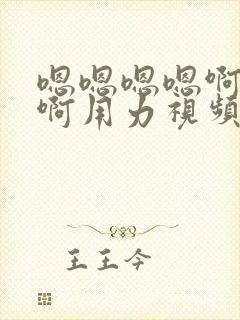 嗯嗯嗯嗯啊
啊用力視頻
王王今